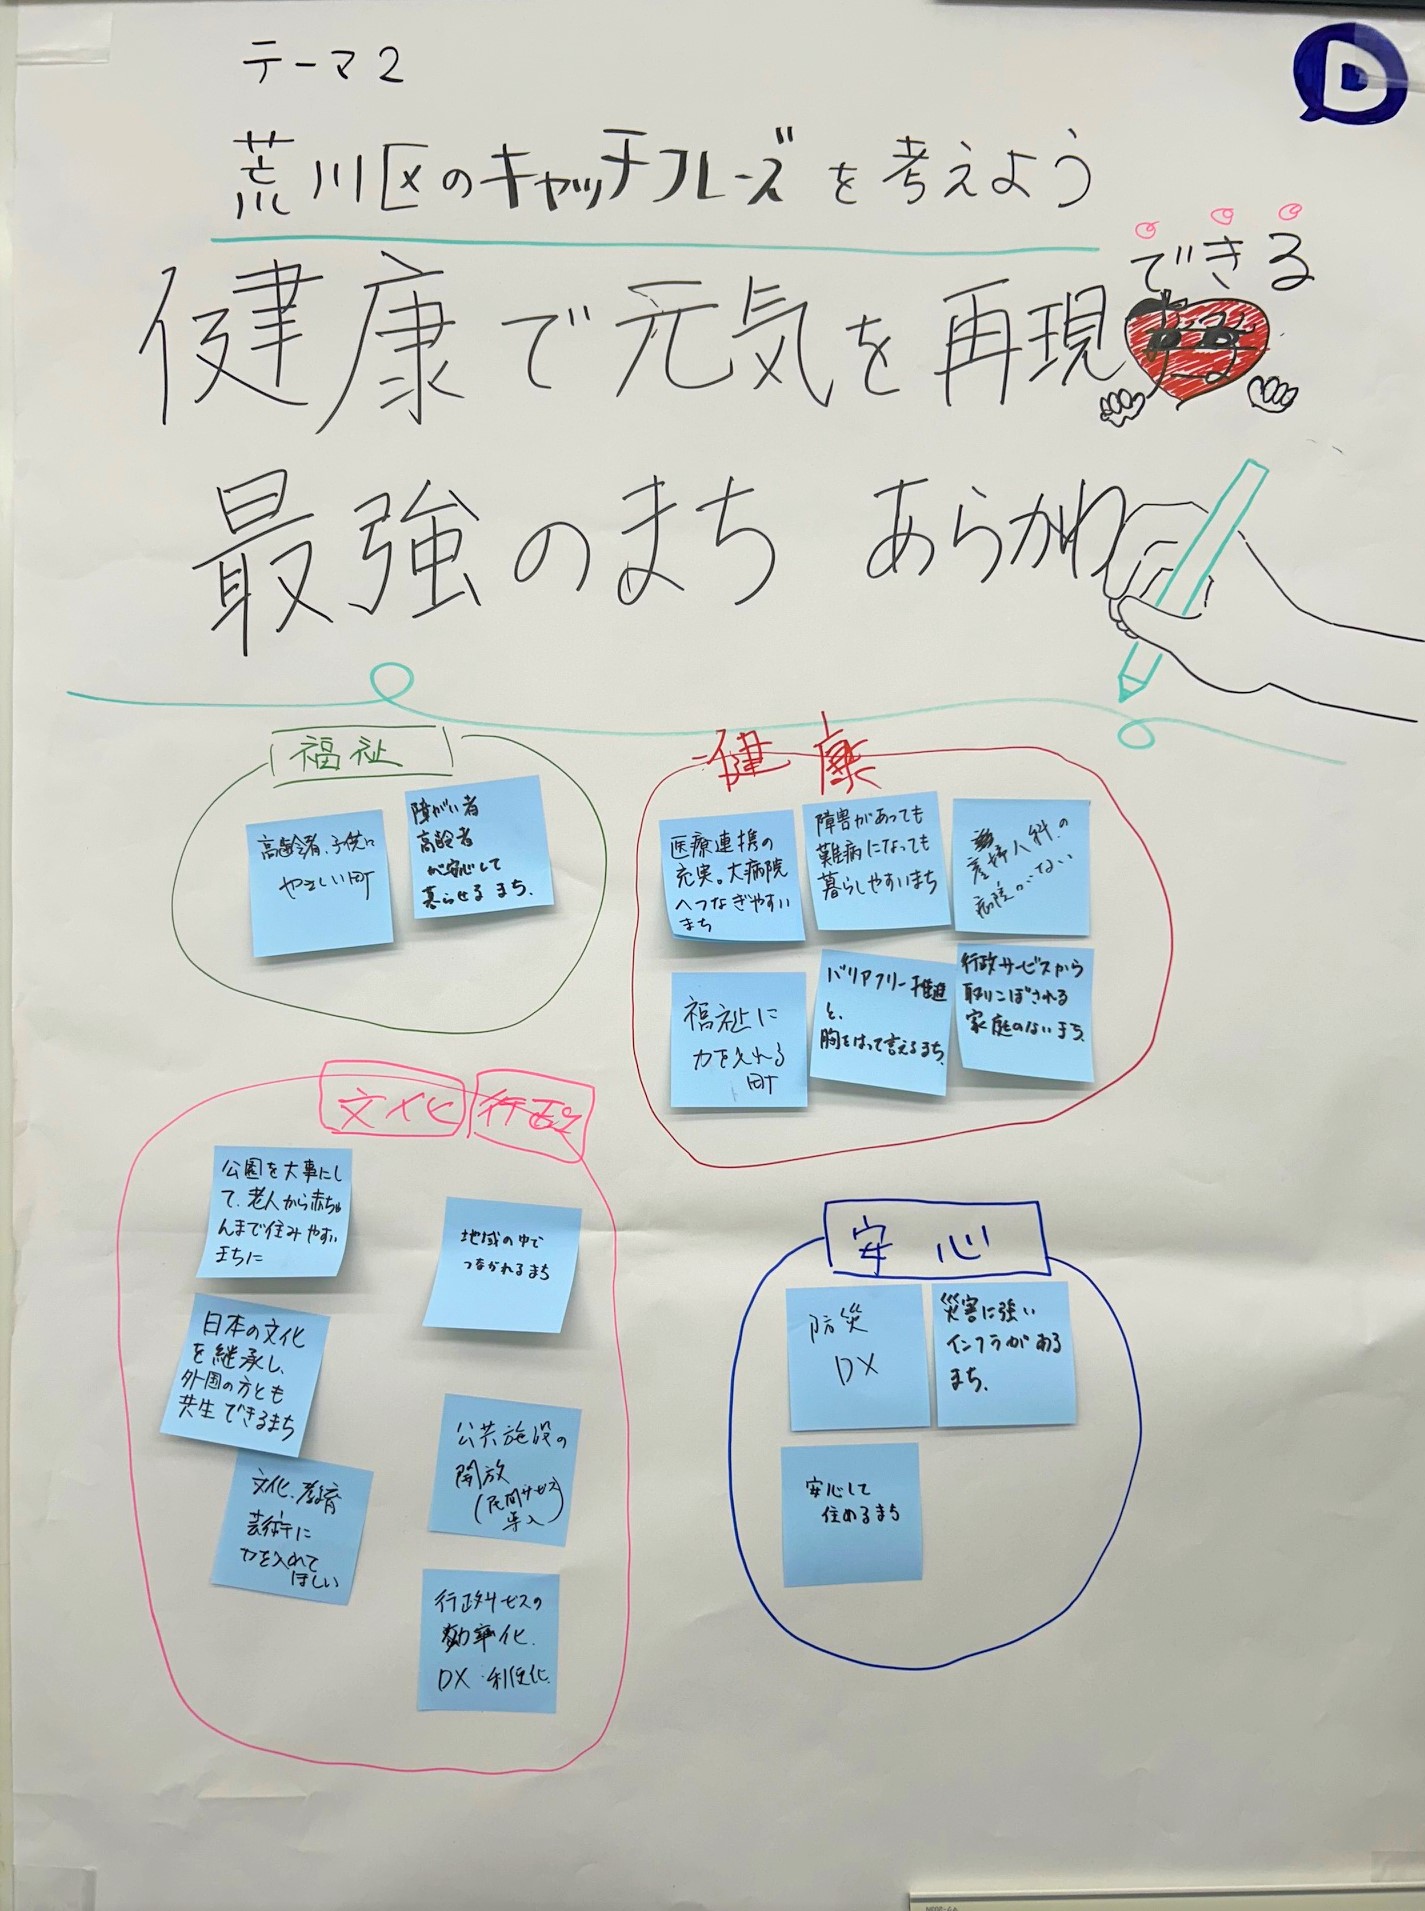 テーマ2
D
荒川区のキャッチフレーズを考えよう
健康で元気を再現
できる
最強のまち あらかわ
福祉
高齢者、子供に
やさしい町
障がい者
高齢者
が安心して
暮らせるまち.
健康
医療連携の
充実。大病院
へつなぎやすい
まち
障害があっても
難病になっても
暮らしやすいまち
産婦人科の
病院がない
福祉に
力を入れる
町
バリアフリー推進
と、
胸をはって言えるまち.
行政サービスから
取りこぼされる
家庭のないまち.
文化 行政
公園を大事にし
て、老人から赤ちゃ
んまで住みやすい
まちに
地域の中で
つながれるまち
日本の文化
を継承し、
外国の方とも
共生できるまち
公共施設の
開放
(民間サービス
導入)
文化、教育
芸術に
力を入れて
ほしい
行政サービスの
効率化.
DX・利便化
安心
防災
DX
災害に強い
インフラがある
まち.
安心して
住めるまち